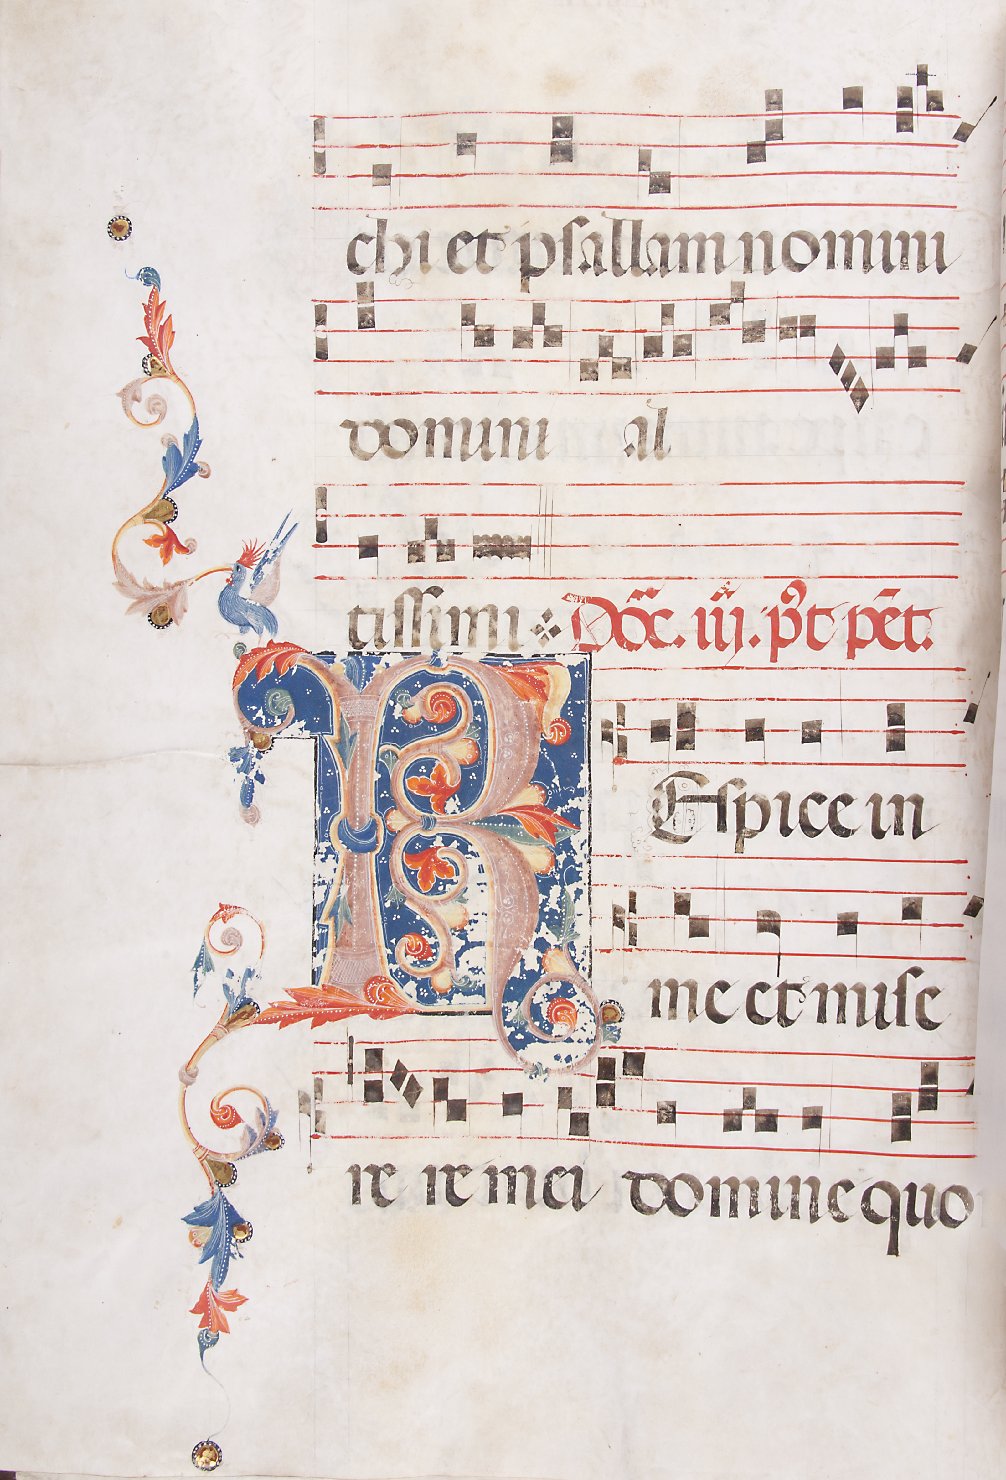 chi et psallam nomini
domini al
tissimi Doc. iij. p't pēt.
REspice in
me et mise
re re mei domine quo